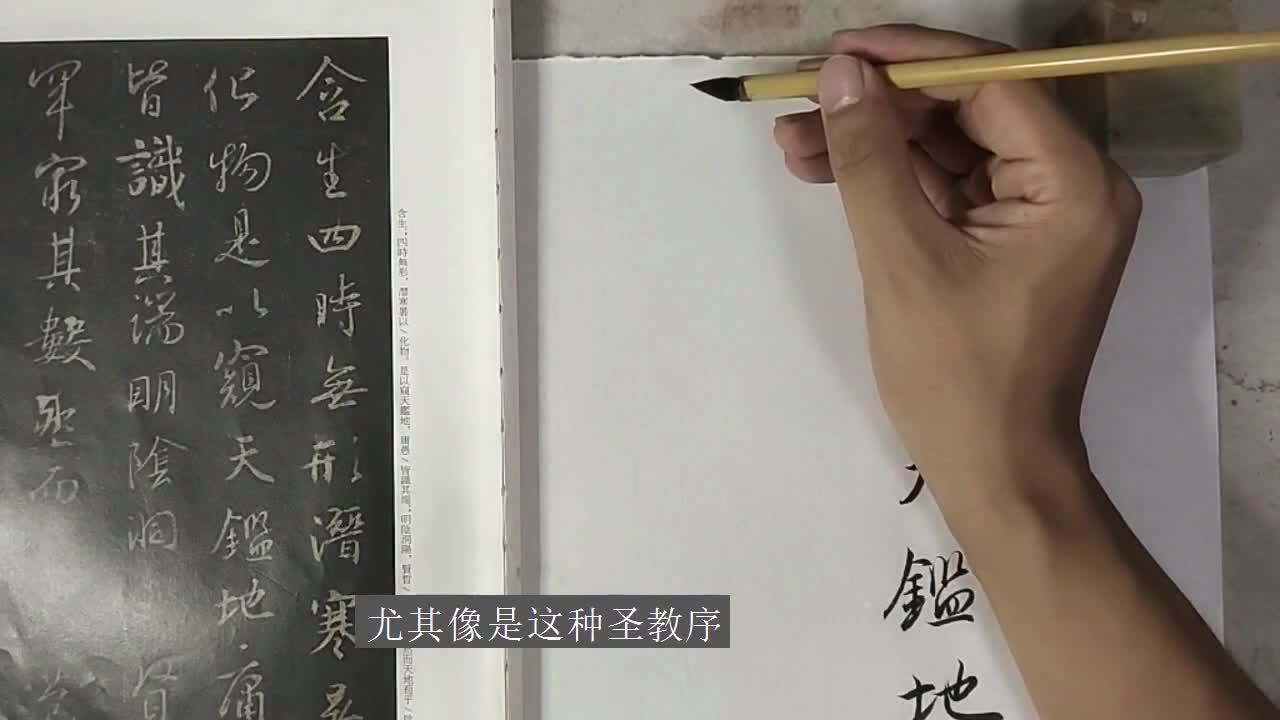 含生四時無形潛寒暑
化物是以窺天鑑地庸
皆識其端明陰洞 賢
罕窮其數然而
含生；四時無形，潛寒暑以／化物。是以窺天鑑地，庸愚／皆識其端；明陰洞陽，賢哲／
天鑑地
尤其像是这种圣教序